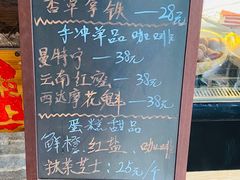 香草拿铁—28元
手冲单品咖啡
曼特宁—38元
云南红蜜—38元
西达摩花魁—38元
蛋糕甜品
鲜橙、红盐、
抹茶芝士:25元/个